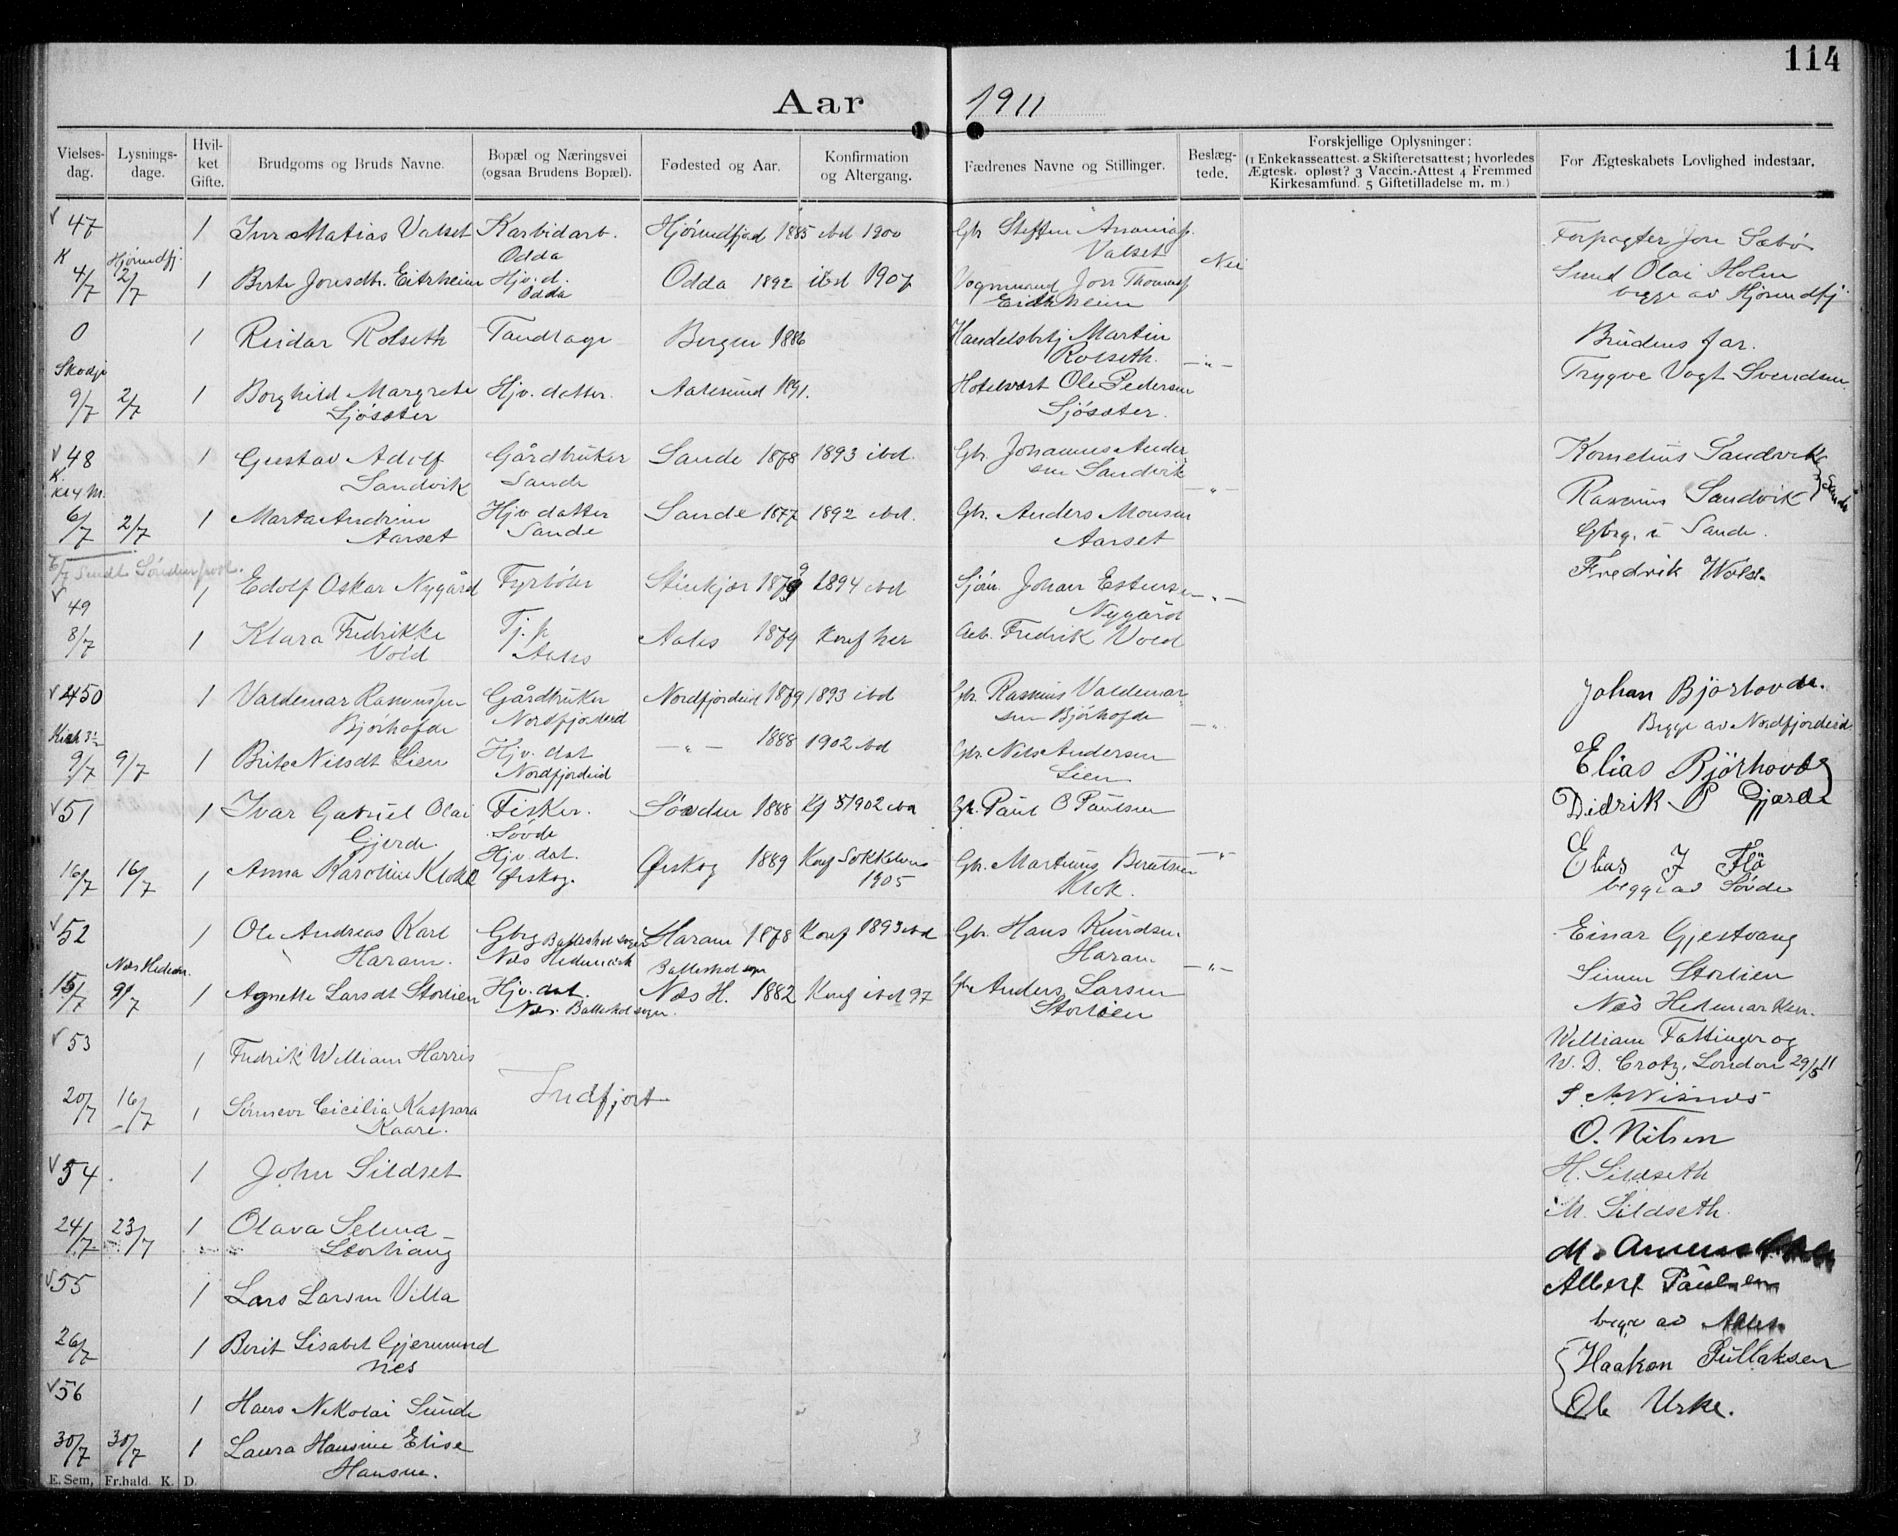 114
Aar 1911
Vielses-dag. Lysnings-dage. Hvil-ket Gifte. Brudgoms og Bruds Navne. Bopæl og Næringsvei (ogsaa Brudens Bopæl). Fødested og Aar. Konfirmation og Altergang. Fædrenes Navne og Stillinger. Beslæg-tede. Forskjellige Oplysninger: (1 Enkekasseattest. 2 Skifteretsattest; hvorledes Ægtesk. opløst? 3 Vaccin.-Attest 4 Fremmed Kirkesamfund. 5 Giftetilladelse m. m.) For Ægteskabets Lovlighed indestaar.
47 1 Matias Valset Karbidarb. Hjørundfjord 1885 ibd 1900 Gbr Steffen Forpagter Jon Sæbø
K Hjørundfj. Odda Valset Nei
4/7 2/7 1 Berte Jonsdtr. Eitrheim Hjv. d. Odda 1892 ibd 1907 Jon Olai Holm
Odda Eitrheim begge av Hjørundfj.
0 1 Reidar Rolseth Tandlæge Bergen 1886 Handelsbetj Martin Brudens far.
Skodje Rolseth. -"-
9/7 2/7 1 Borghild Margrete Hjv. datter. Aalesund 1891. Hotelvært Ole Pedersen Trygve Vogt Svendsen.
Sjøsæter Sjøsæter.
48 1 Gustav Adolf Gårdbruker Sande 1878 1893 ibd. Gbr. Johannes Ander Kornelius Sandvik
K Sandvik Sande sen Sandvik -"- Sande
Kl 4 M. Rasmus Sandvik
6/7 2/7 1 Marta Andrine Hjv datter Sande 1877 1892 ibd. Gbr. Anders Monsen
Aarset Sande Aarset Gbrg. i Sande.
6/7 Sendt
1 Edolf Oskar Nygård Fyrbøter Stenkjær 1879 1894 ibd Johan Estensen -"- Fredrik Wold
49 Nygård
8/7 1 Klara Fredrikke Tj. p. Aales 1879 Konf her Arb. Fredrik Vold
Vold Aales
450 1 Valdemar Rasmussen Gårdbruker Nordfjordeid 1879 1893 ibd Gbr. Rasmus Valdemar Johan Bjørhovde.
Bjørhofde Nordfjordeid sen Bjørhofde -"- Begge av Nordfjordeid
Kirk 3½ -"- 1888 1902 ibd
9/7 9/7 1 Brite Nilsdt Lien Hjv. dat Gbr. Nils Andersen Elias Bjørhovde
Nordfjordeid Lien
51 1 Ivar Gabriel Olai Fisker. 1888 Kf 1902 ibd Gbr. Paul O Paulsen Didrik P Gjærde
Gjerde Søvde
16/7 16/7 1 Anna Karoline Klokk Hjv. dat. Ørskog 1889 Konf Sokkelven Gbr. Martinus Berntsen -"- Elias J Flø
Ørskog. 1905 Klok. begge av Søvde
52 1 Ole Andreas Karl Gbrg Balleshol sogn Haram 1878 Konf 1893 ibd Gbr. Hans Knudsen Einar Gjestvang
Næs Hedem. Haram. Næs Hedemark Balleshol sogn Haram -"-
15/7 9/7 1 Agnette Larsdt Storlien Hjv. dat. Næs H. 1882 Konf ibd 97 Anders Larsen Simen Storlien
Næs. Balleshol sogn. Storlien Næs Hedemarken.
53 1 Fredrik William Harris William Fattinger og
Indfjort W. D. Crotz, London 29/5 11
20/7 16/7 1 Cicilia Kaspara
Kaare.
O. Nilsen
54 1 John Sildset H. Sildseth
24/7 23/7 1 Olava Selma M. Sildseth.
M.
55 1 Lars Larsen Villa Albert Paulsen
begge av Aales
26/7 1 Berit Lisabet Gjermund
nes Haakon Sullaksen
56 1 Hans Nikolai Sunde Ole Urke.
30/7 30/7 1 Laura Hansine Elise
Hansen.
E. Sem, Fr.hald. K. D.